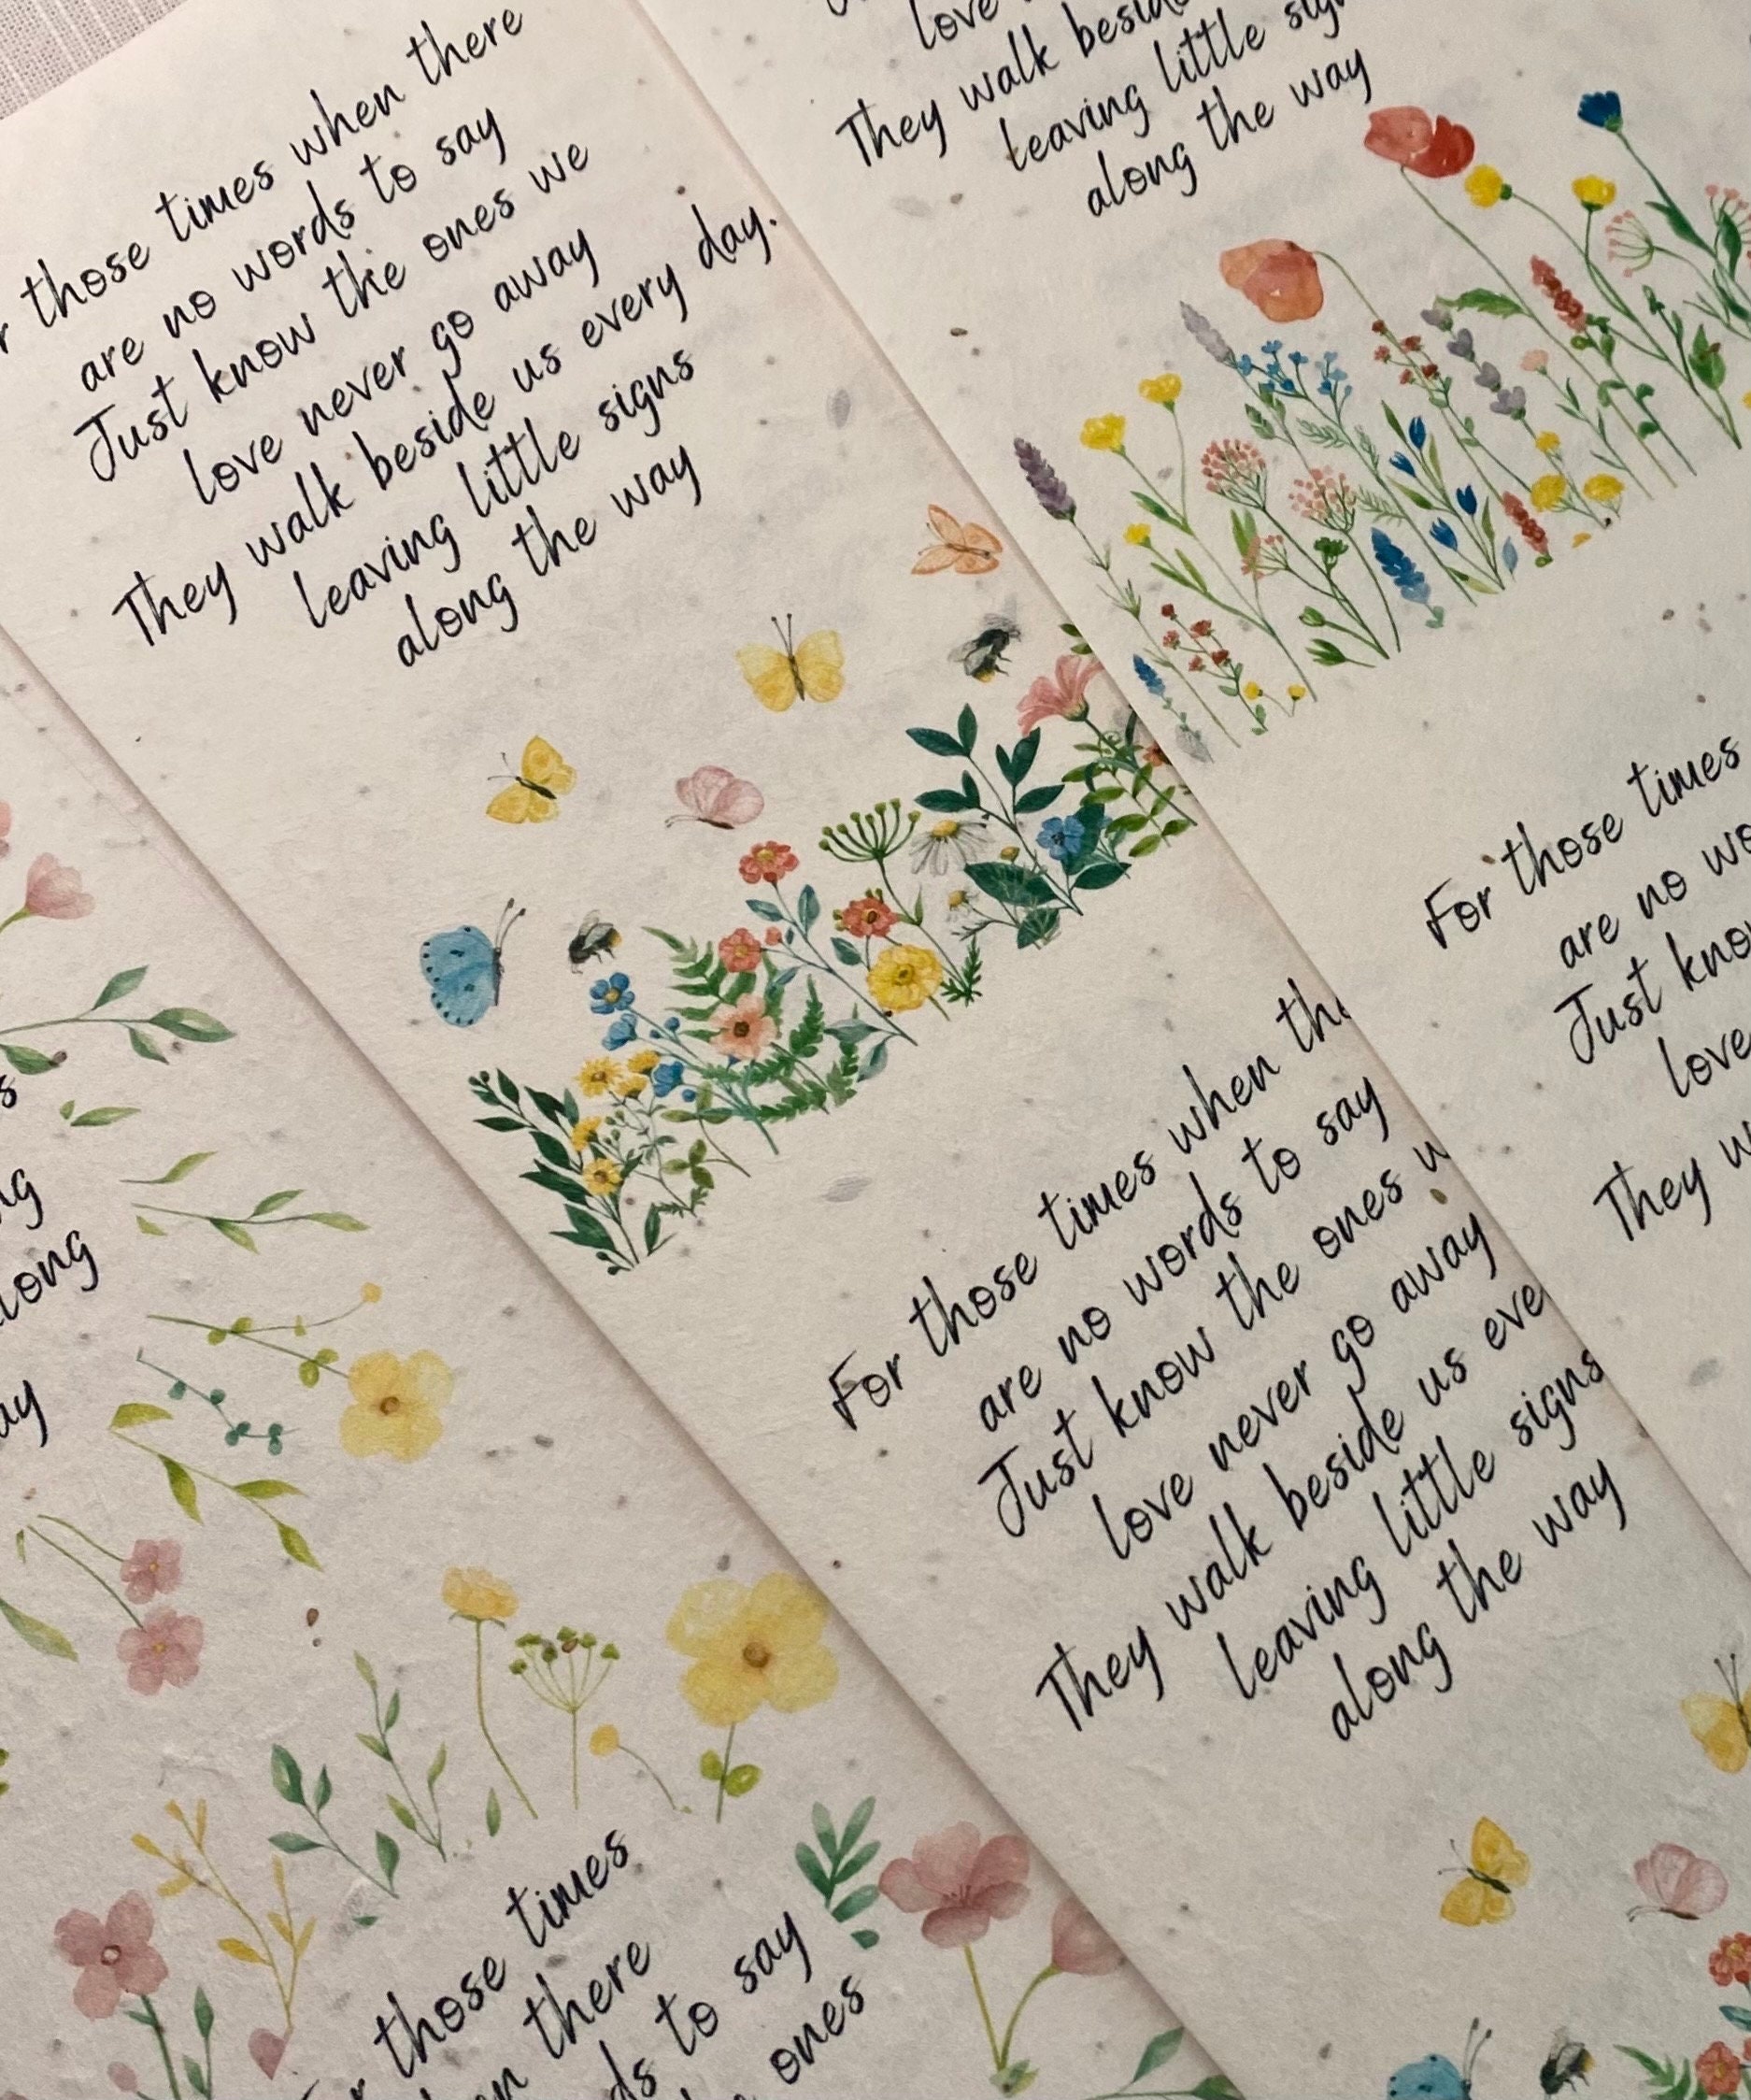 those times when there
are no words to say
Just know the ones we
love never go away
They walk beside us every day.
leaving little signs
along the way
love
They walk beside
leaving little sig
along the way
For those times when the
are no words to say
Just know the ones w
love never go away
They walk beside us eve
leaving little signs
along the way
For those times
are no wo
Just know
love
They w
s
ng
long
ay
those times
en there
ds to say
ones